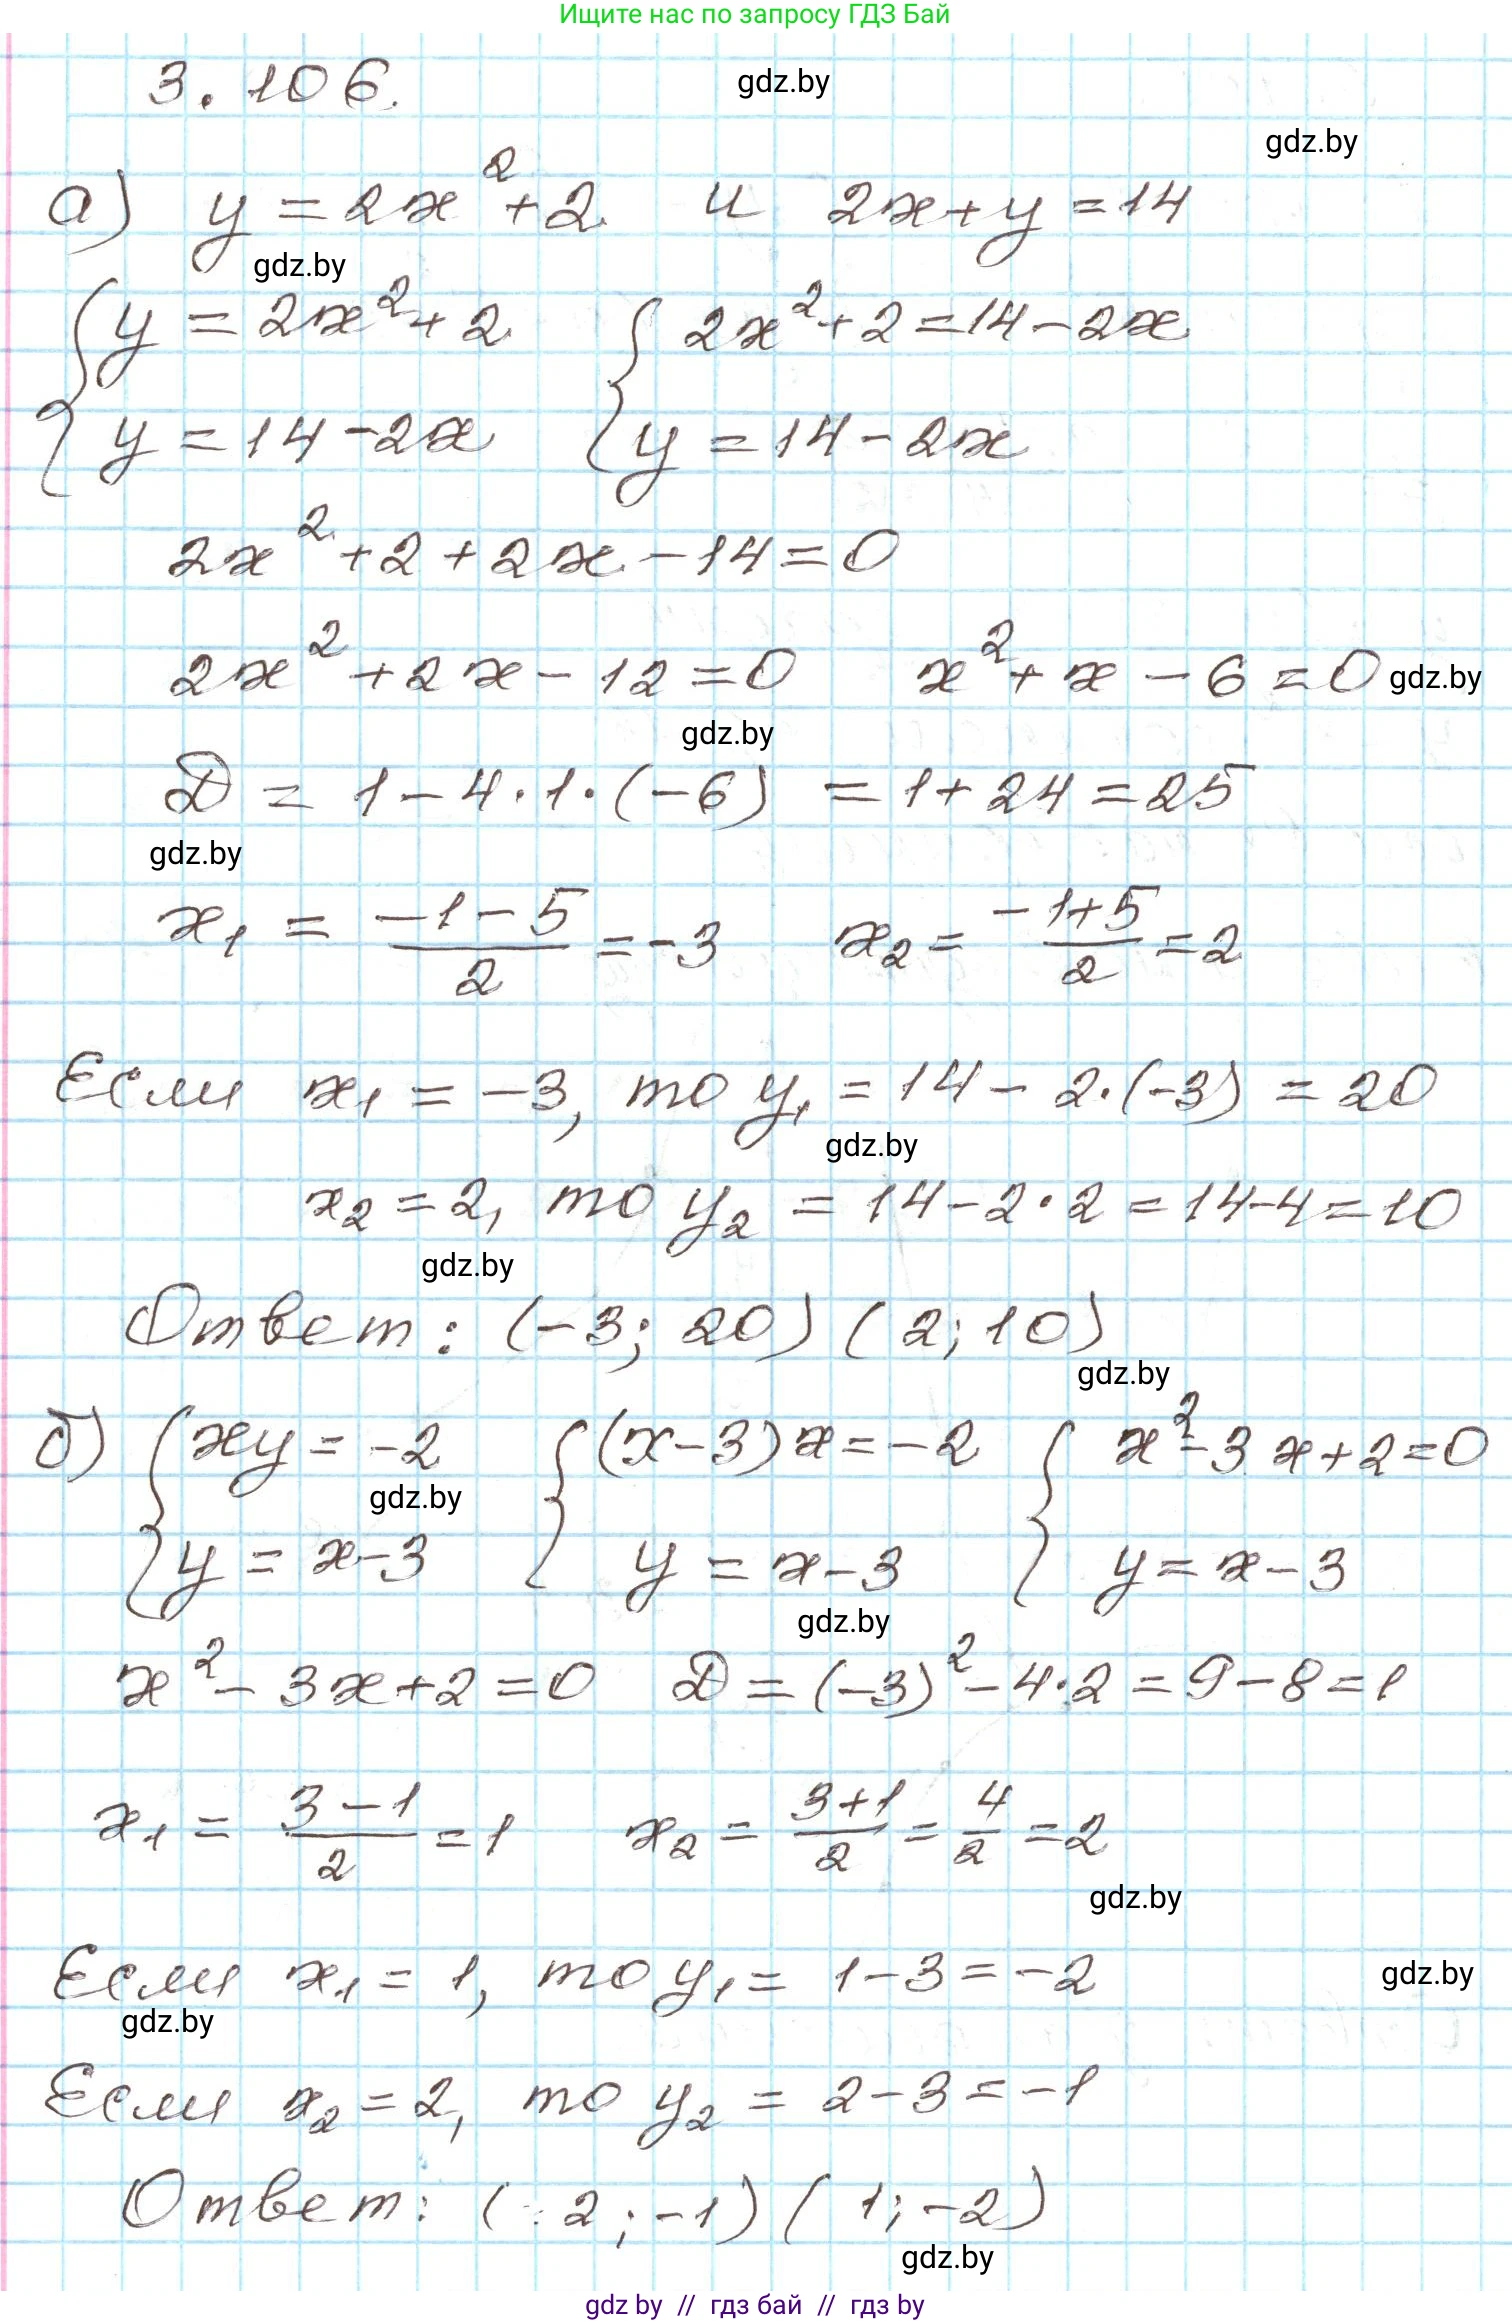 Ищите нас по запросу ГДЗ Бай
3.106.
gdz.by
gdz.by
а) y = 2x² + 2 и 2x + y = 14
gdz.by
{ y = 2x² + 2 { 2x² + 2 = 14 - 2x
y = 14 - 2x y = 14 - 2x
2x² + 2 + 2x - 14 = 0
2x² + 2x - 12 = 0 x² + x - 6 = 0 gdz.by
gdz.by
D = 1 - 4 · 1 · (-6) = 1 + 24 = 25
gdz.by
x₁ = (-1 - 5)/2 = -3 x₂ = (-1 + 5)/2 = 2
Если x₁ = -3, то y₁ = 14 - 2·(-3) = 20
gdz.by
x₂ = 2, то y₂ = 14 - 2·2 = 14 - 4 = 10
gdz.by
Ответ: (-3; 20) (2; 10)
gdz.by
б) { xy = -2 { (x - 3) x = -2 { x² - 3x + 2 = 0
gdz.by
y = x - 3 y = x - 3 y = x - 3
gdz.by
x² - 3x + 2 = 0 D = (-3)² - 4·2 = 9 - 8 = 1
x₁ = (3 - 1)/2 = 1 x₂ = (3 + 1)/2 = 4/2 = 2
gdz.by
Если x₁ = 1, то y₁ = 1 - 3 = -2 gdz.by
gdz.by
Если x₂ = 2, то y₂ = 2 - 3 = -1
Ответ: (2; -1) (1; -2)
gdz.by
gdz by // гдз бай // гдз by